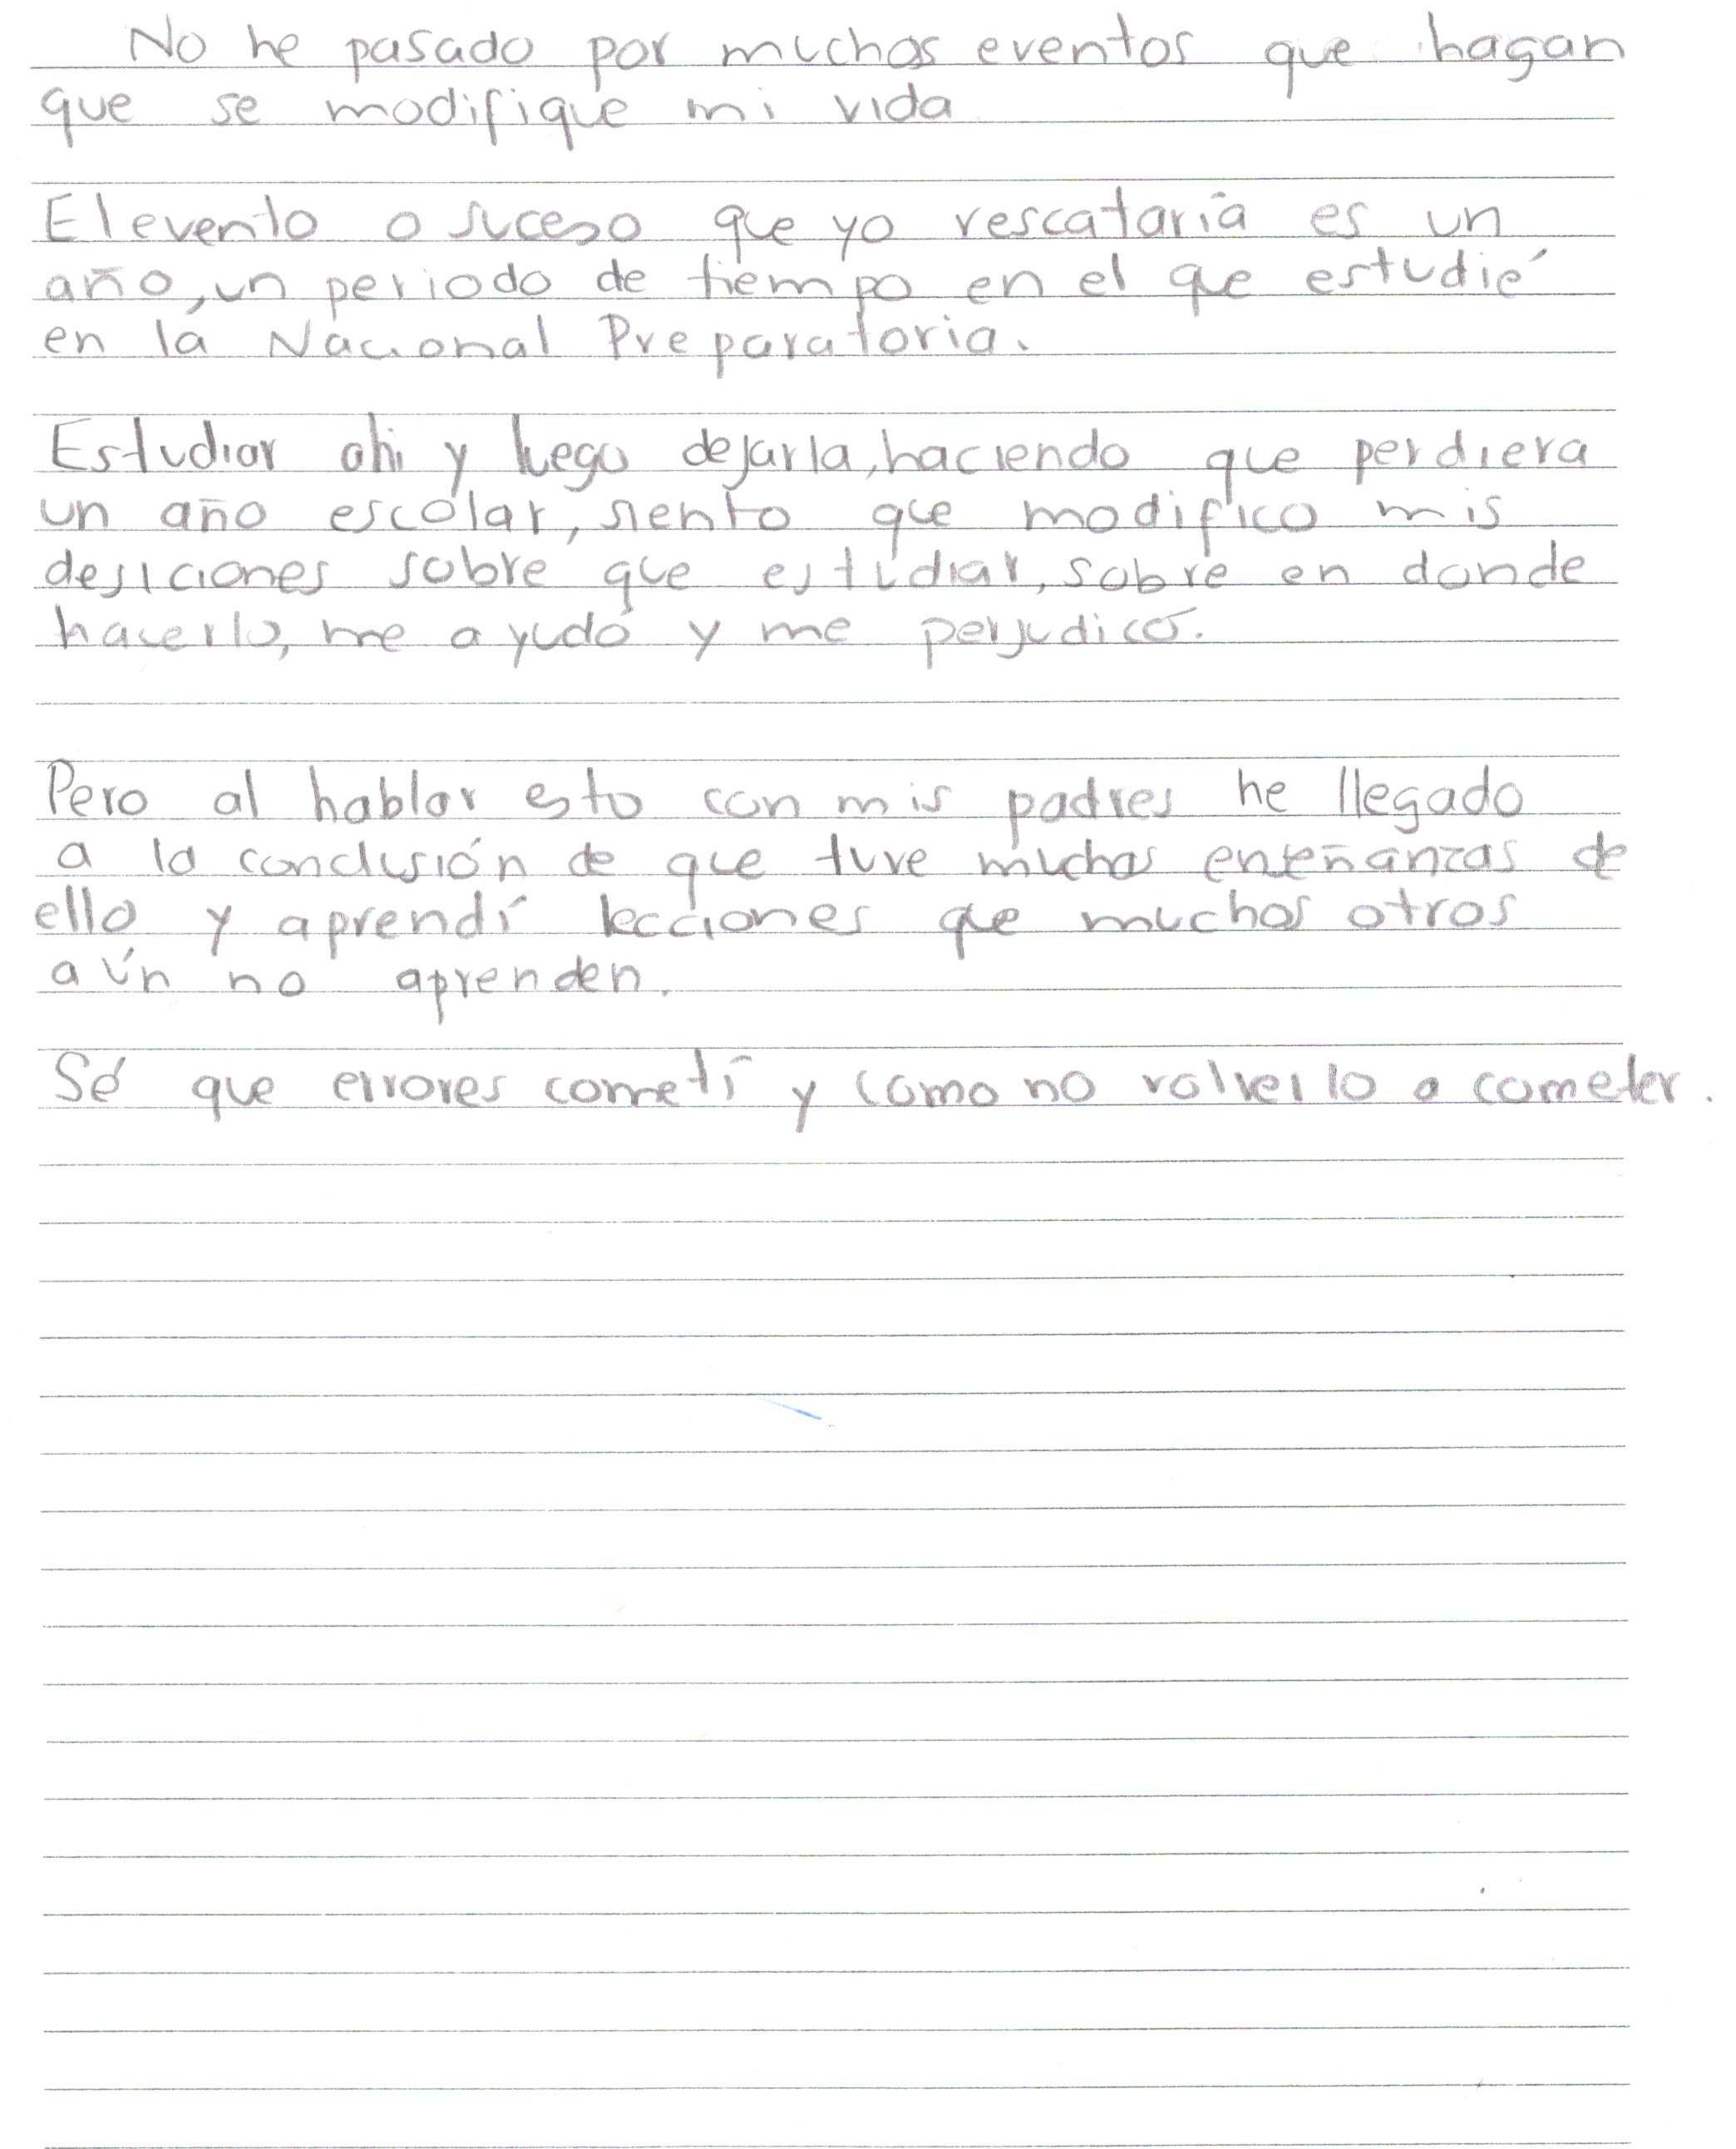 No he pasado por muchos eventos que hagan
que se modifique mi vida
El evento o suceso que yo rescataría es un
año, un periodo de tiempo en el que estudié
en la Nacional Preparatoria.
Estudiar ahi y luego dejarla, haciendo que perdiera
un año escolar, siento que modifico mis
desiciones sobre que estudiar, sobre en donde
hacerlo, me ayudó y me perjudicó.
Pero al hablar esto con mis padres he llegado
a la conclusión de que tuve muchas enseñanzas de
ello y aprendí lecciones que muchos otros
aún no aprenden.
Sé que errores cometí y como no volverlo a cometer.